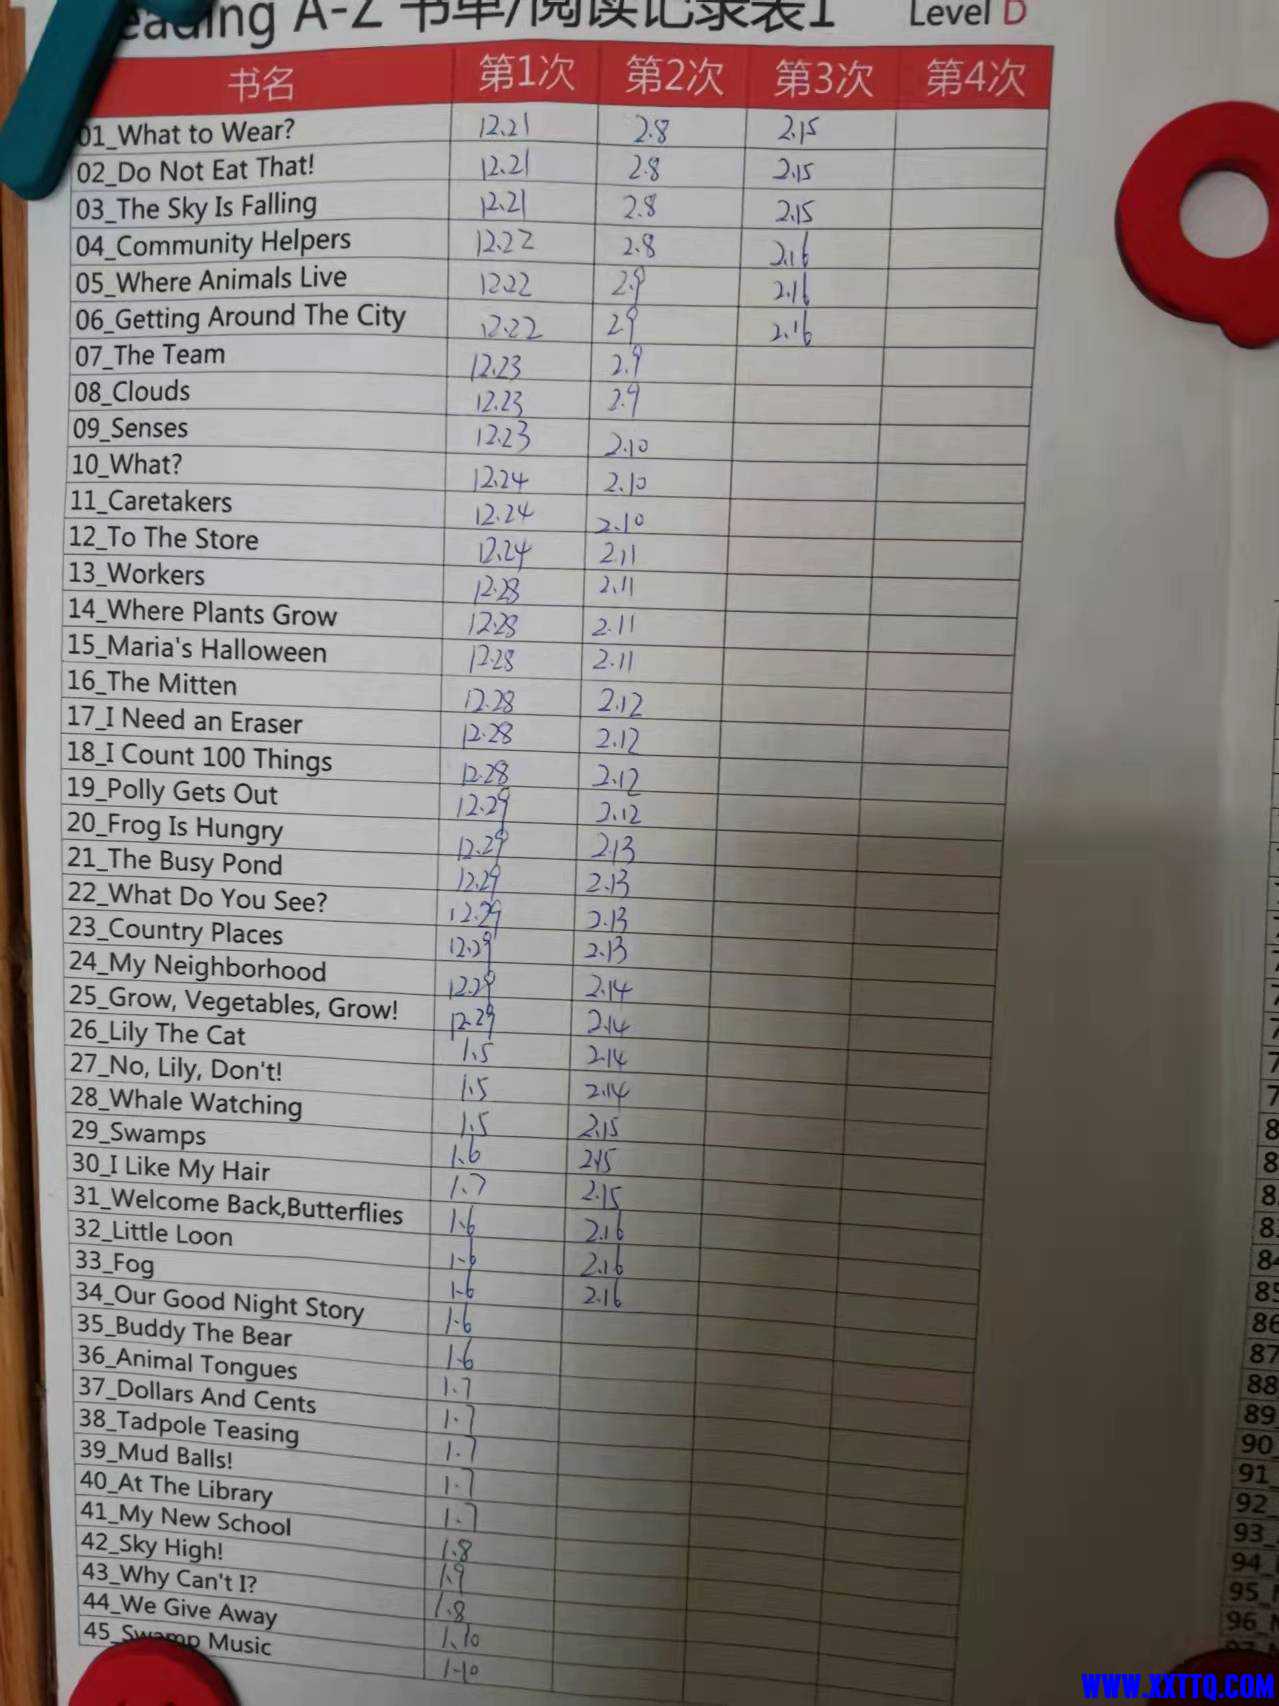 eading A-Z 书单/阅读记录表1 Level D
书名 第1次 第2次 第3次 第4次
01_What to Wear? 12.21 2.8 2.15
02_Do Not Eat That! 12.21 2.8 2.15
03_The Sky Is Falling 12.21 2.8 2.15
04_Community Helpers 12.22 2.8 2.16
05_Where Animals Live 12.22 2.9 2.16
06_Getting Around The City 12.22 2.9 2.16
07_The Team 12.23 2.9
08_Clouds 12.23 2.9
09_Senses 12.23 2.10
10_What? 12.24 2.10
11_Caretakers 12.24 2.10
12_To The Store 12.24 2.11
13_Workers 12.28 2.11
14_Where Plants Grow 12.28 2.11
15_Maria's Halloween 12.28 2.11
16_The Mitten 12.28 2.12
17_I Need an Eraser 12.28 2.12
18_I Count 100 Things 12.28 2.12
19_Polly Gets Out 12.29 2.12
20_Frog Is Hungry 12.29 2.13
21_The Busy Pond 12.29 2.13
22_What Do You See? 12.29 2.13
23_Country Places 12.29 2.13
24_My Neighborhood 12.29 2.14
25_Grow, Vegetables, Grow! 12.29 2.14
26_Lily The Cat 1.5 2.14
27_No, Lily, Don't! 1.5 2.14
28_Whale Watching 1.5 2.15
29_Swamps 1.6 2.15
30_I Like My Hair 1.7 2.15
31_Welcome Back,Butterflies 1.6 2.16
32_Little Loon 1-6 2.16
33_Fog 1-6 2.16
34_Our Good Night Story 1-6
35_Buddy The Bear 1-6
36_Animal Tongues 1.7
37_Dollars And Cents 1.7
38_Tadpole Teasing 1.7
39_Mud Balls! 1.7
40_At The Library 1.7
41_My New School 1.8
42_Sky High! 1.9
43_Why Can't I? 1.8
44_We Give Away 1.10
45_Swamp Music 1-10
84
85
86
87
88
89
90
91_
92_
93_
94_
95_
96_
WWW.XXTTQ.COM